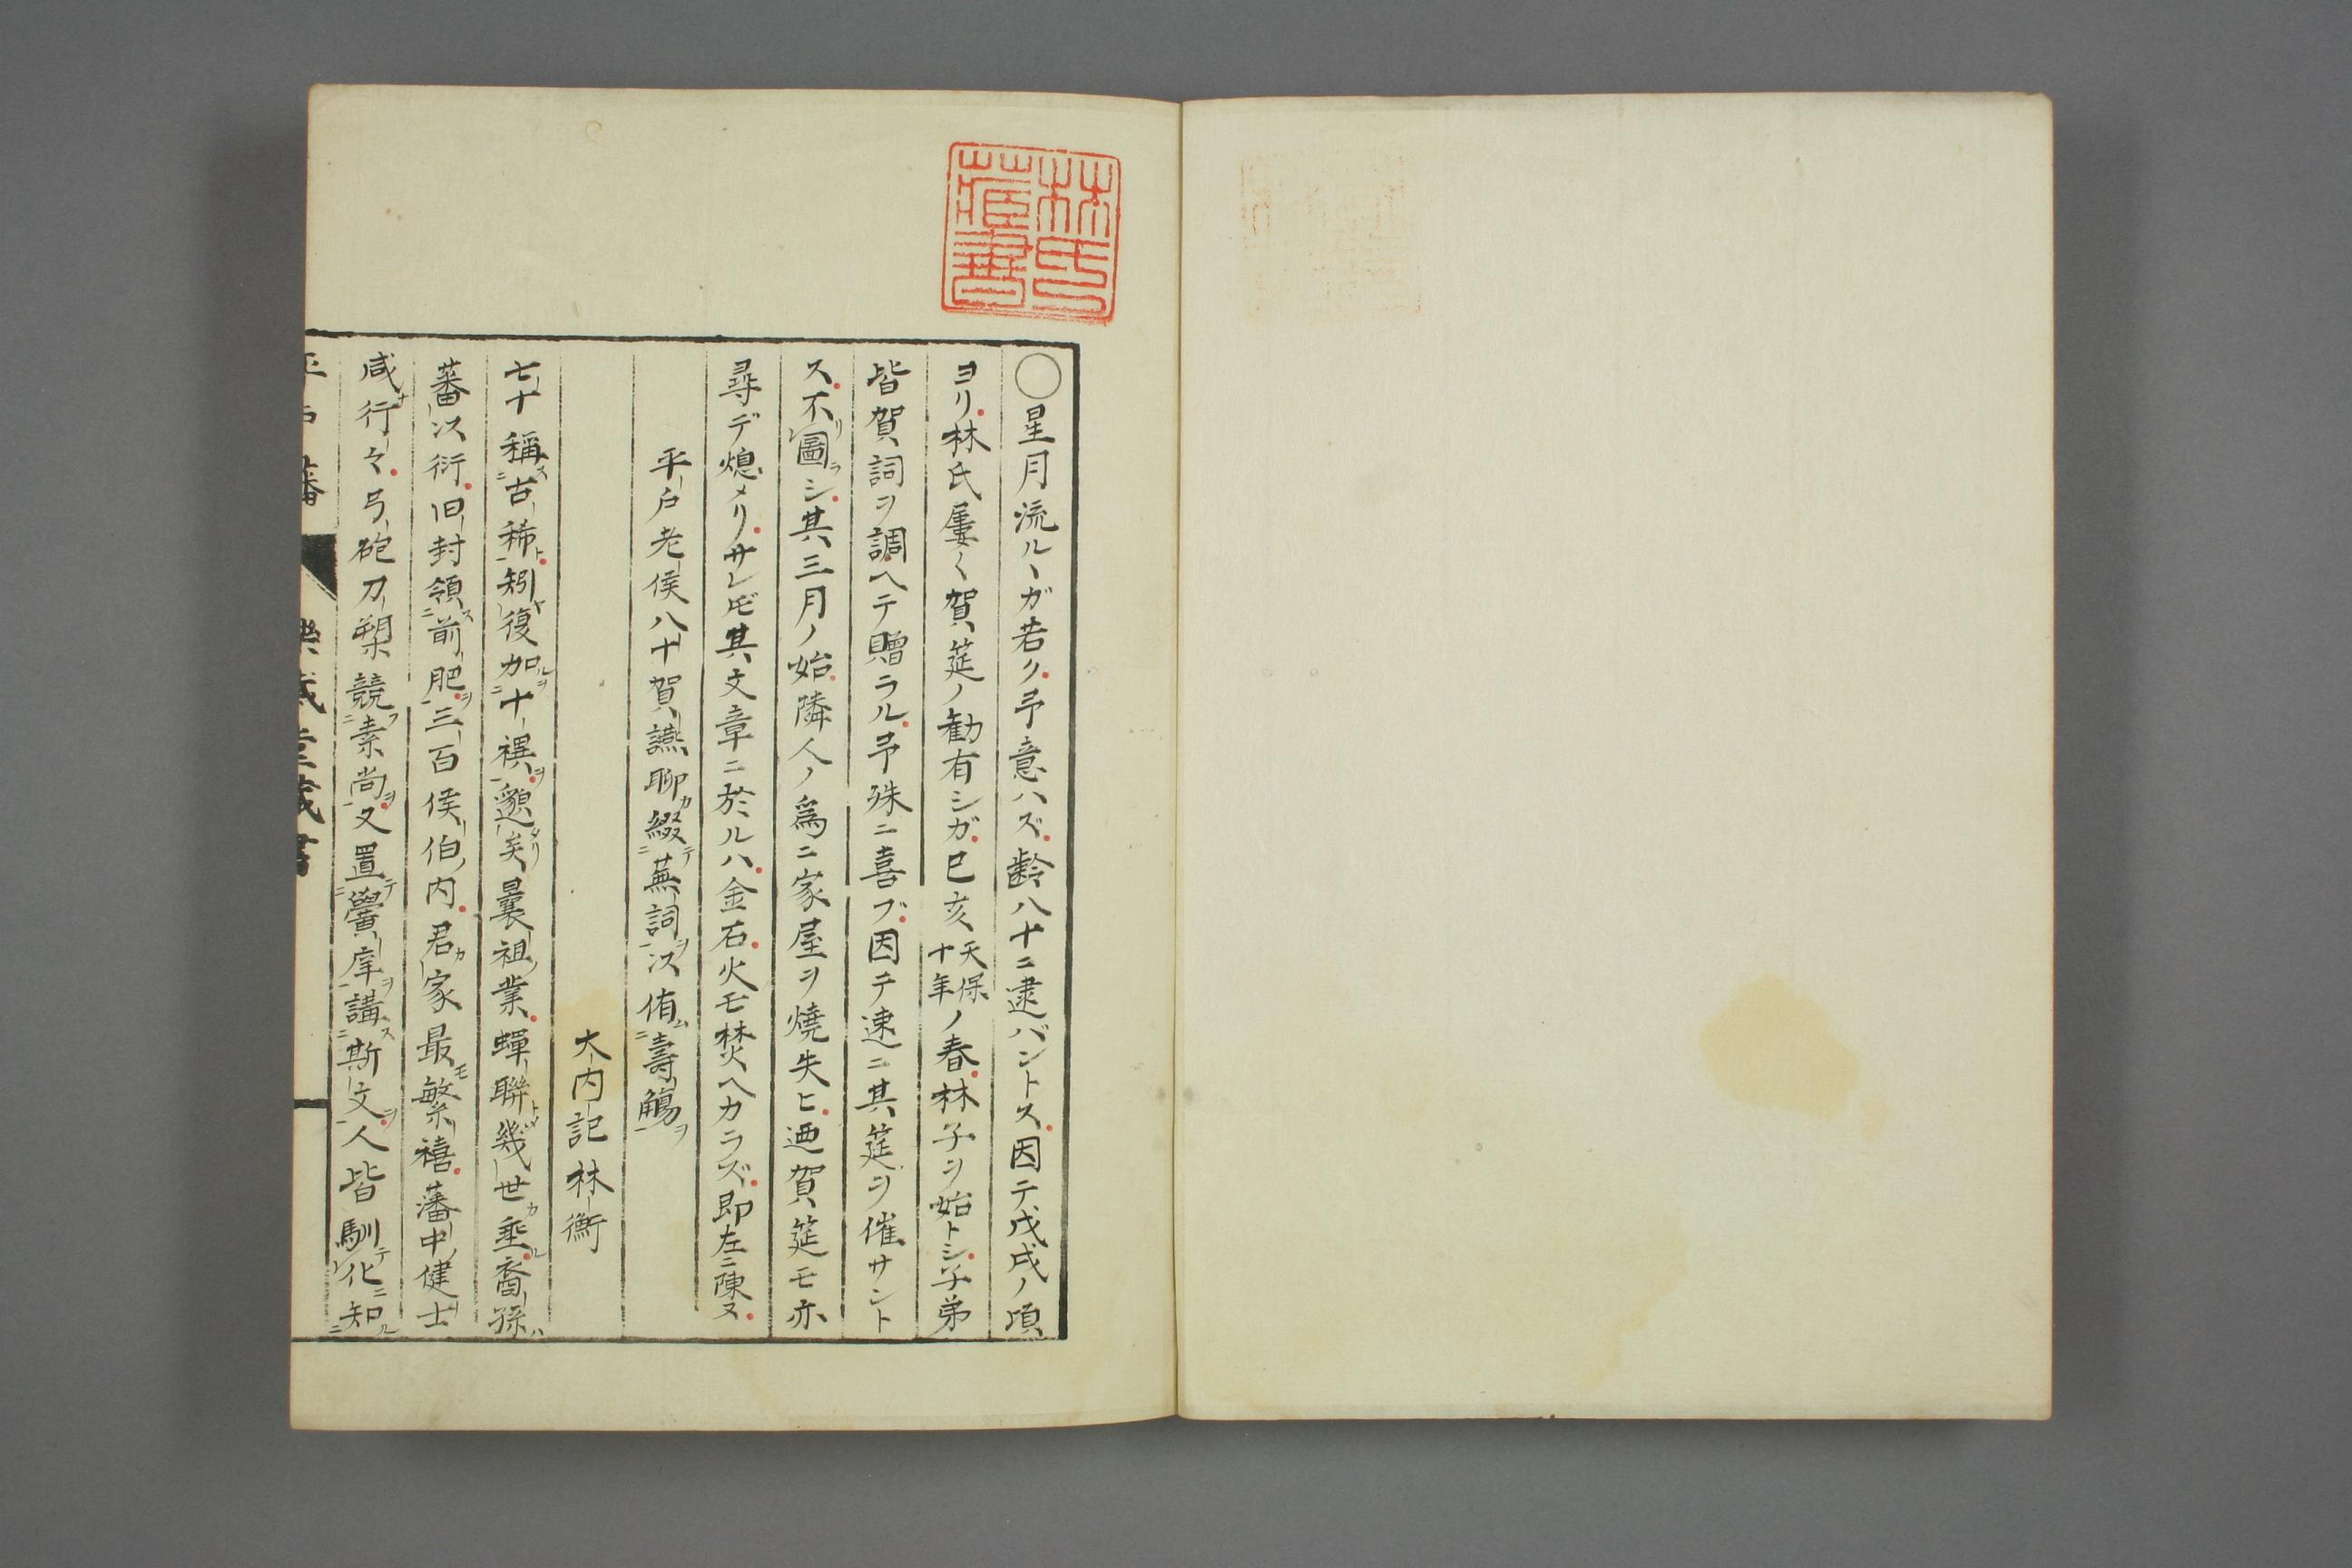 林氏
蔵書
〇星月流ルヽガ若ク予意ハズ齢八十ニ逮バントス因テ戊戌ノ頃
ヨリ林氏屢〱賀筵ノ勧有シガ巳亥天保十年ノ春林子ヲ始トシ子弟
皆賀詞ヲ調ヘテ贈ラル予殊ニ喜ブ因テ速ニ其筵ヲ催サント
ス不図ラシ其三月ノ始隣人ノ為ニ家屋ヲ焼失ヒ迺賀筵モ亦
尋デ熄メリサレㇳモ其文章ニ於ルハ金石火モ焚ヘカラズ即左ニ陳ヌ
平戸老侯八十賀讌聊綴蕪詞以侑寿觴
大内記林衡
七十稱古稀矧復加十禩邈矣曩祖業蟬聯幾世垂裔孫
蕃以衍旧封領前肥三百侯伯内君家最繁禧藩中健士
咸行々弓砲刀槊競素尚又置黌庠講斯文人皆馴化知
平戸藩 楽歳堂蔵書